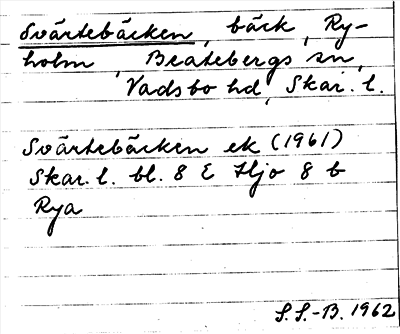 Svärtebäcken, bäck, Ry-
holm, Beatebergs sn,
Vadsbo hd, Skar. l.
Svärtebäcken ek (1961)
Skar. l. bl. 8 E Hjo 8 b
Rya
S.S.-B. 1962